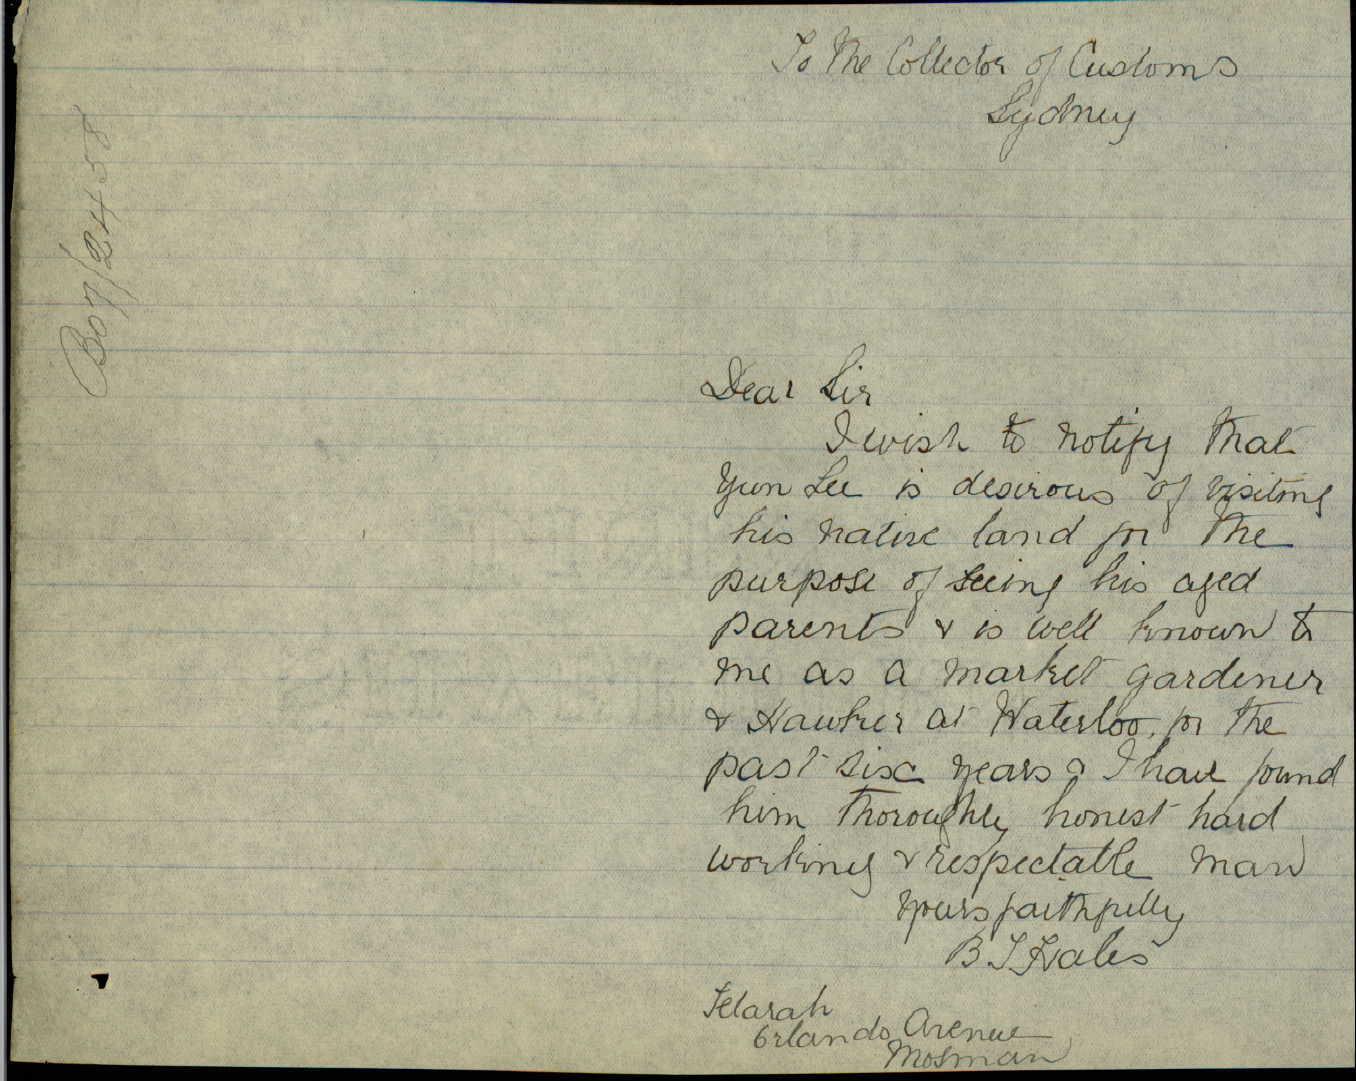 To the Collector of Customs
Sydney
Dear Sir
I wish to notify that
Yun Lee is desirous of visiting
his native land for the
purpose of seeing his aged
parents & is well known to
me as a market gardener
& Hawker at Waterloo, for the
past six years & I have found
him thoroughly honest hard
working & respectable man
yours faithfully
B T Hales
Telarah
Orlando Avenue
Mosman